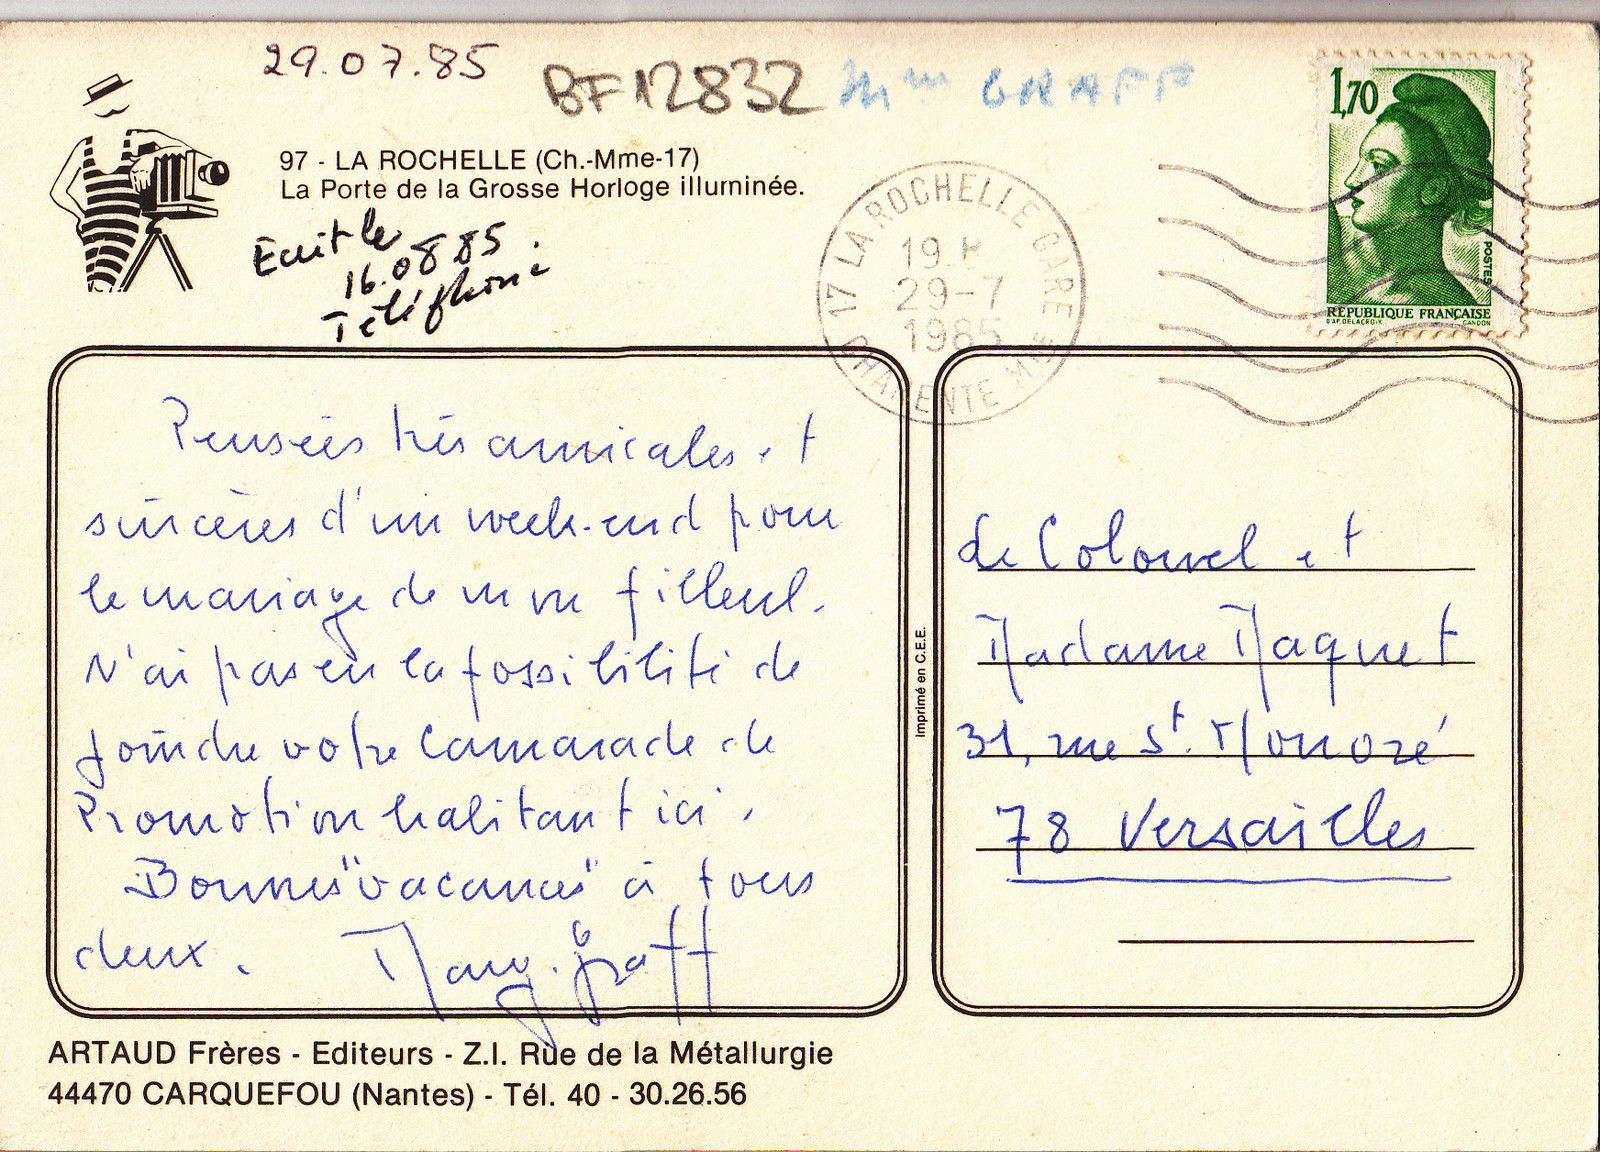 29.07.85
BF12832 Mme GRAFF
97 - LA ROCHELLE (Ch.-Mme-17)
La Porte de la Grosse Horloge illuminée.
Ecrit le
16.08 85
Téléphoné
17 LA ROCHELLE GARE
19 H
29-7
1985
CHARENTE MME
1,70
POSTES
RÉPUBLIQUE FRANÇAISE
D'AP. DELACROIX GANDON
Pensées très amicales et
sincères d'un week-end pour
le mariage de mon filleul.
N'ai pas eu la possibilité de
joindre votre Camarade de
Promotion habitant ici.
Bonnes "vacances" à tous
deux. Marg. Graff
Imprimé en C.E.E.
Le Colonel et
Madame Maquet
31, rue St. Honoré
78 Versailles
ARTAUD Frères - Editeurs - Z.I. Rue de la Métallurgie
44470 CARQUEFOU (Nantes) - Tél. 40 - 30.26.56